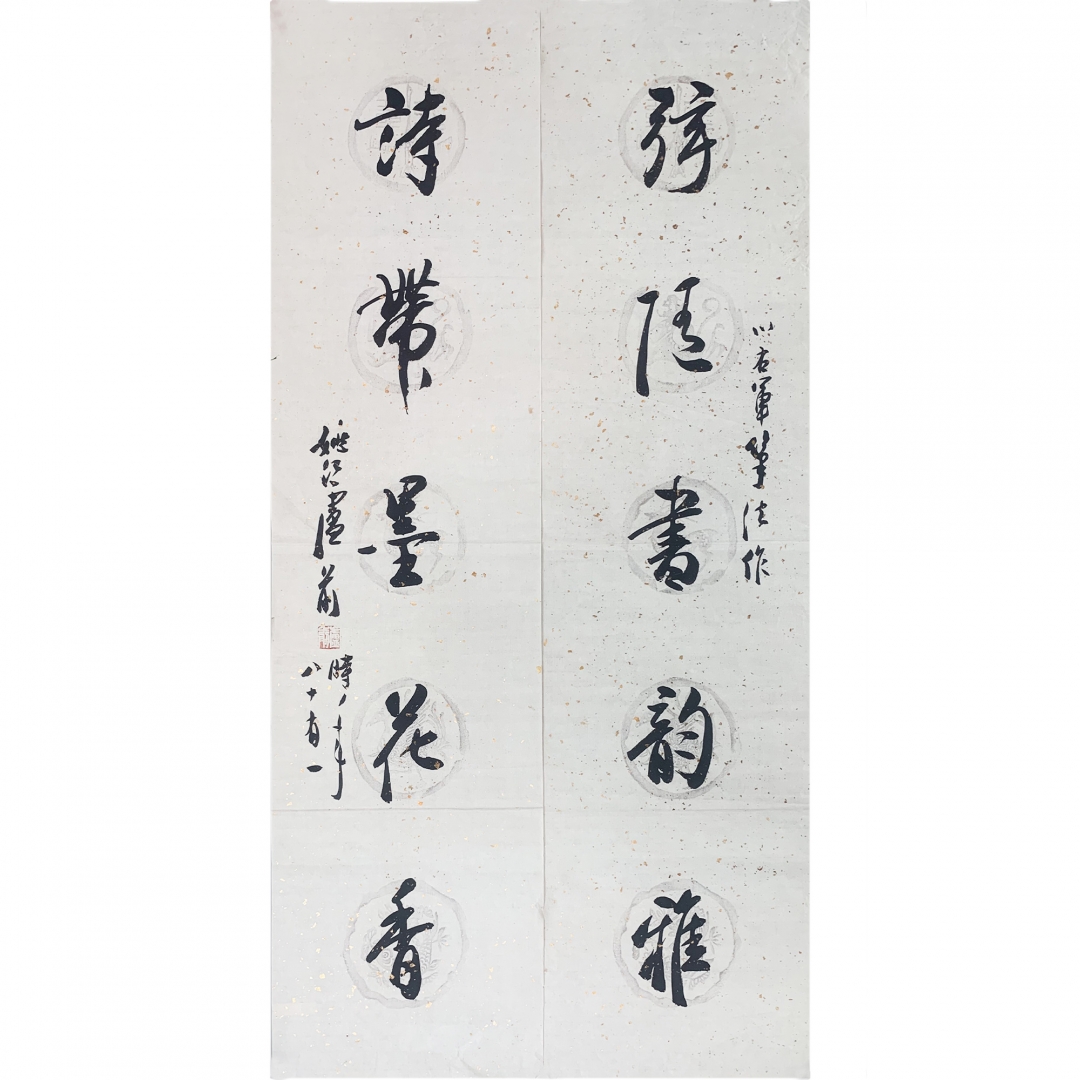 弦随書韻雅
以右軍筆法作
詩帶墨花香
姚江盧前
時年
八十有一